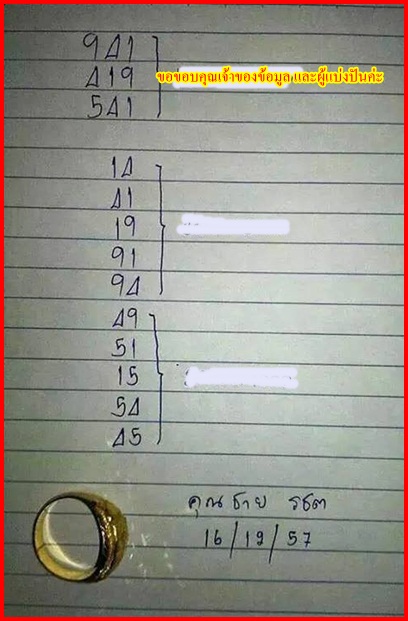 941
419
ขอขอบคุณเจ้าของข้อมูล และผู้แบ่งปันค่ะ
541
14
41
19
91
94
49
51
15
54
45
คุณชาย รชต
16/12/57